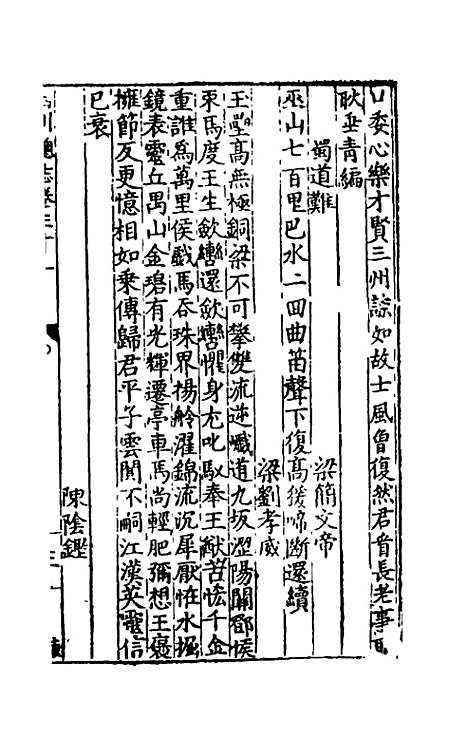 口委心樂才賢三州諒如故士風曾復然君首長老事
耿垂青編
蜀道難 梁簡文帝
巫山七百里巴水二回曲笛聲下復高猨啼斷還續
梁劉孝威
玉壘高無極銅梁不可攀雙流逆巇道九坂澀陽關鄧侯
束馬度王生斂轡還斂轡懼身尤叱馭奉王猷若恡千金
重誰爲萬里侯戲馬吞珠界揚舲濯錦流沉犀厭怪水掘
鏡表靈丘禺山金碧有光輝遷亭車馬尚輕肥彌想王褒
擁節反更憶相如乘傳歸君平子雲閴不嗣江漢英靈信
已衰
陳陰鏗
川總志卷三十